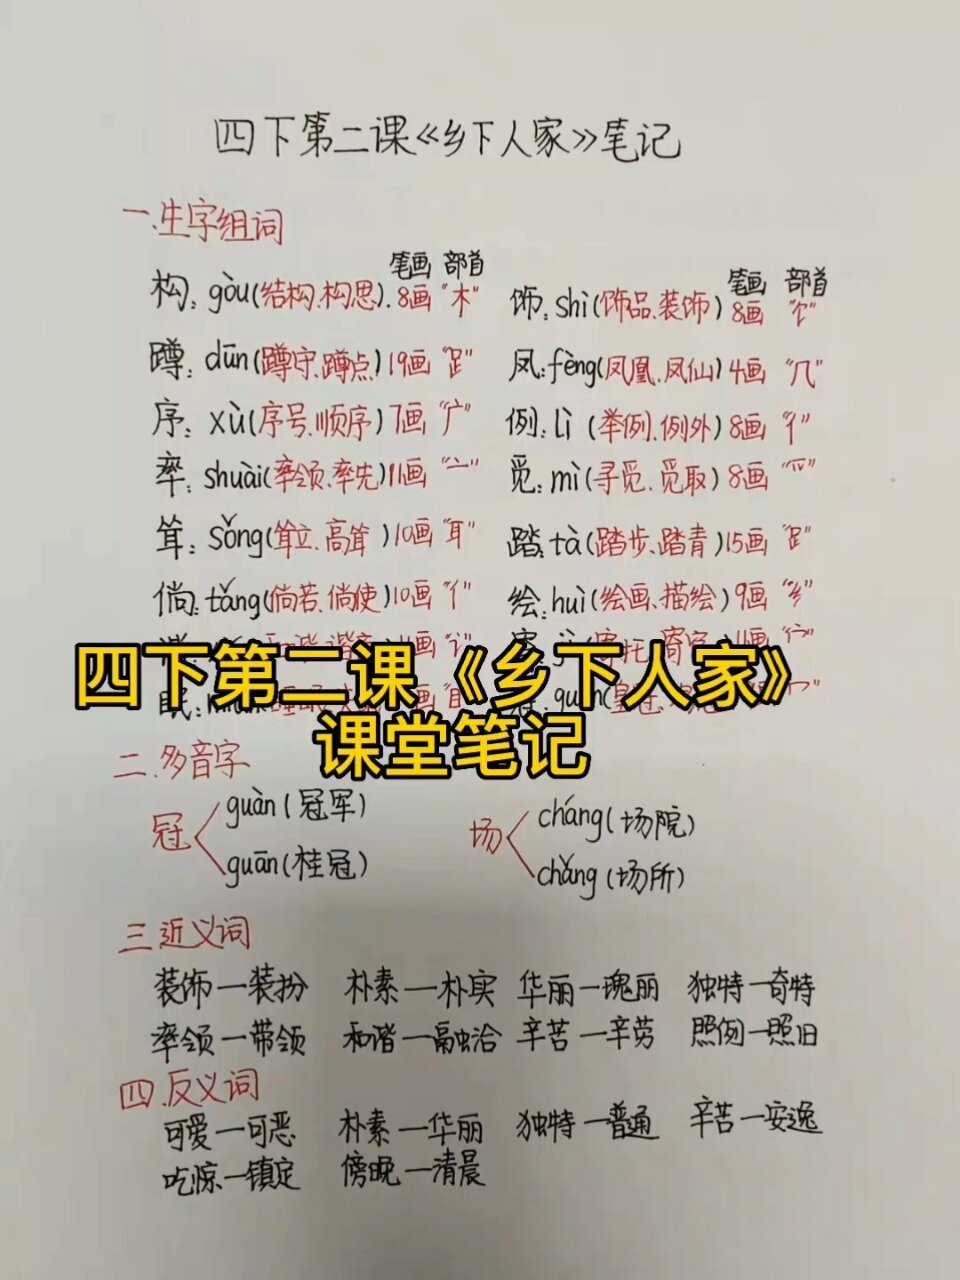 四下第二课《乡下人家》笔记
一.生字组词
笔画 部首 笔画 部首
构: gòu(结构、构思). 8画 "木" 饰: shì(饰品、装饰) 8画 "饣"
蹲: dūn(蹲守、蹲点) 19画 "⻊" 凤: fèng(凤凰、凤仙) 4画 "几"
序: xù(序号、顺序) 7画 "广" 例: lì (举例、例外) 8画 "亻"
率: shuài(率领、率先) 11画 "亠" 觅: mì(寻觅、觅取) 8画 "爫"
耸: sǒng(耸立、高耸 ) 10画 "耳" 踏: tà(踏步、踏青) 15画 "⻊"
倘: tǎng(倘若、倘使) 10画 "亻" 绘: huì(绘画、描绘) 9画 "纟"
四下第二课《乡下人家》
课堂笔记
眠:
二.多音字
冠 guàn(冠军) 场 cháng(场院)
guān(桂冠) chǎng(场所)
三.近义词
装饰—装扮 朴素—朴实 华丽—瑰丽 独特—奇特
率领—带领 和谐—融洽 辛苦—辛劳 照例—照旧
四.反义词
可爱—可恶 朴素—华丽 独特—普通 辛苦—安逸
吃惊—镇定 傍晚—清晨